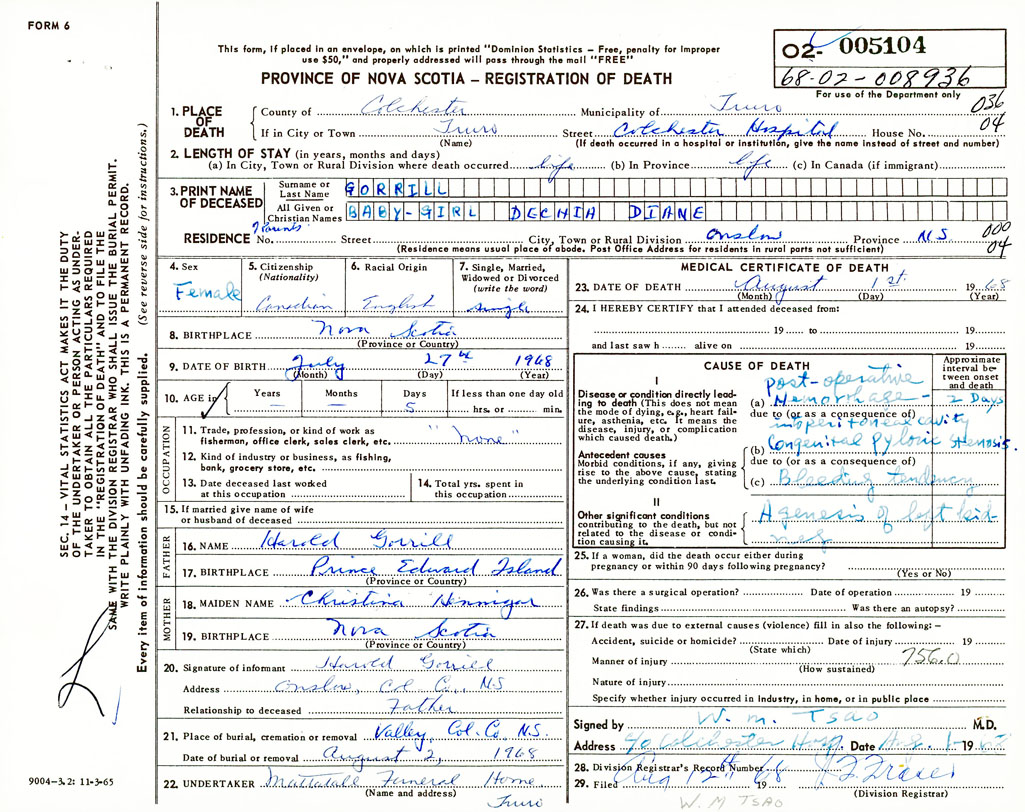 FORM 6
This form, if placed in an envelope, on which is printed "Dominion Statistics – Free, penalty for improper
use $50," and properly addressed will pass through the mail "FREE"
PROVINCE OF NOVA SCOTIA – REGISTRATION OF DEATH
02- 005104
68-02-008936
For use of the Department only
036
04
1. PLACE OF DEATH
County of Colchester Municipality of Truro
If in City or Town Truro Street Colchester Hospital House No.
(Name) (If death occurred in a hospital or institution, give the name instead of street and number)
2. LENGTH OF STAY (in years, months and days)
(a) In City, Town or Rural Division where death occurred life (b) In Province life (c) In Canada (if immigrant)
3. PRINT NAME OF DECEASED
Surname or Last Name GORRILL
All Given or Christian Names BABY-GIRL DECHIA DIANE
Parents
RESIDENCE No. Street City, Town or Rural Division Onslow Province N.S.
000
04
(Residence means usual place of abode. Post Office Address for residents in rural parts not sufficient)
4. Sex
Female
5. Citizenship
(Nationality)
Canadian
6. Racial Origin
English
7. Single, Married,
Widowed or Divorced
(write the word)
single
8. BIRTHPLACE Nova Scotia
(Province or Country)
9. DATE OF BIRTH July 27th 1968
(Month) (Day) (Year)
10. AGE in
Years Months Days If less than one day old
– – 5 hrs. or min.
OCCUPATION
11. Trade, profession, or kind of work as
fisherman, office clerk, sales clerk, etc. "none"
12. Kind of industry or business, as fishing,
bank, grocery store, etc.
13. Date deceased last worked
at this occupation
14. Total yrs. spent in
this occupation
15. If married give name of wife
or husband of deceased
FATHER
16. NAME Harold Gorrill
17. BIRTHPLACE Prince Edward Island
(Province or Country)
MOTHER
18. MAIDEN NAME Christina Hennigar
19. BIRTHPLACE Nova Scotia
(Province or Country)
20. Signature of informant Harold Gorrill
Address Onslow, Col Co., N.S
Relationship to deceased Father
21. Place of burial, cremation or removal Valley, Col. Co., N.S.
Date of burial or removal August 2, 1968
22. UNDERTAKER Mattatall Funeral Home
(Name and address)
Truro
MEDICAL CERTIFICATE OF DEATH
23. DATE OF DEATH August 1st 1968
(Month) (Day) (Year)
24. I HEREBY CERTIFY that I attended deceased from:
19 to 19
and last saw h alive on 19
CAUSE OF DEATH
Approximate
interval between onset
and death
I
Disease or condition directly leading
to death (This does not mean
the mode of dying, e.g., heart failure,
asthenia, etc. It means the
disease, injury, or complication
which caused death.)
post-operative
(a) Hemorrhage – 2 Days
due to (or as a consequence of)
in peritoneal cavity
(b) Congenital Pyloric Stenosis.
Antecedent causes
Morbid conditions, if any, giving
rise to the above cause, stating
the underlying condition last.
due to (or as a consequence of)
(c) Bleeding tendency
II
Other significant conditions
contributing to the death, but not
related to the disease or condition
causing it.
Agenesis of left kid-
ney
25. If a woman, did the death occur either during
pregnancy or within 90 days following pregnancy?
(Yes or No)
26. Was there a surgical operation? Date of operation 19
State findings Was there an autopsy?
27. If death was due to external causes (violence) fill in also the following: –
Accident, suicide or homicide? Date of injury 19
(State which)
Manner of injury 756.0
(How sustained)
Nature of injury
Specify whether injury occurred in industry, in home, or in public place
Signed by W. M. TSAO M.D.
Address c/o Colchester Hosp. Date Aug. 1 1968
28. Division Registrar's Record Number
29. Filed Aug 12th 1968 Fraser
(Division Registrar)
W. M TSAO
SEC. 14 – VITAL STATISTICS ACT MAKES IT THE DUTY
OF THE UNDERTAKER OR PERSON ACTING AS UNDER-
TAKER TO OBTAIN ALL THE PARTICULARS REQUIRED
IN THE "REGISTRATION OF DEATH" AND TO FILE THE
SAME WITH THE DIVISION REGISTRAR WHO SHALL ISSUE THE BURIAL PERMIT.
WRITE PLAINLY WITH UNFADING INK. THIS IS A PERMANENT RECORD.
Every item of information should be carefully supplied. (See reverse side for instructions.)
9004-3.2: 11-3-65